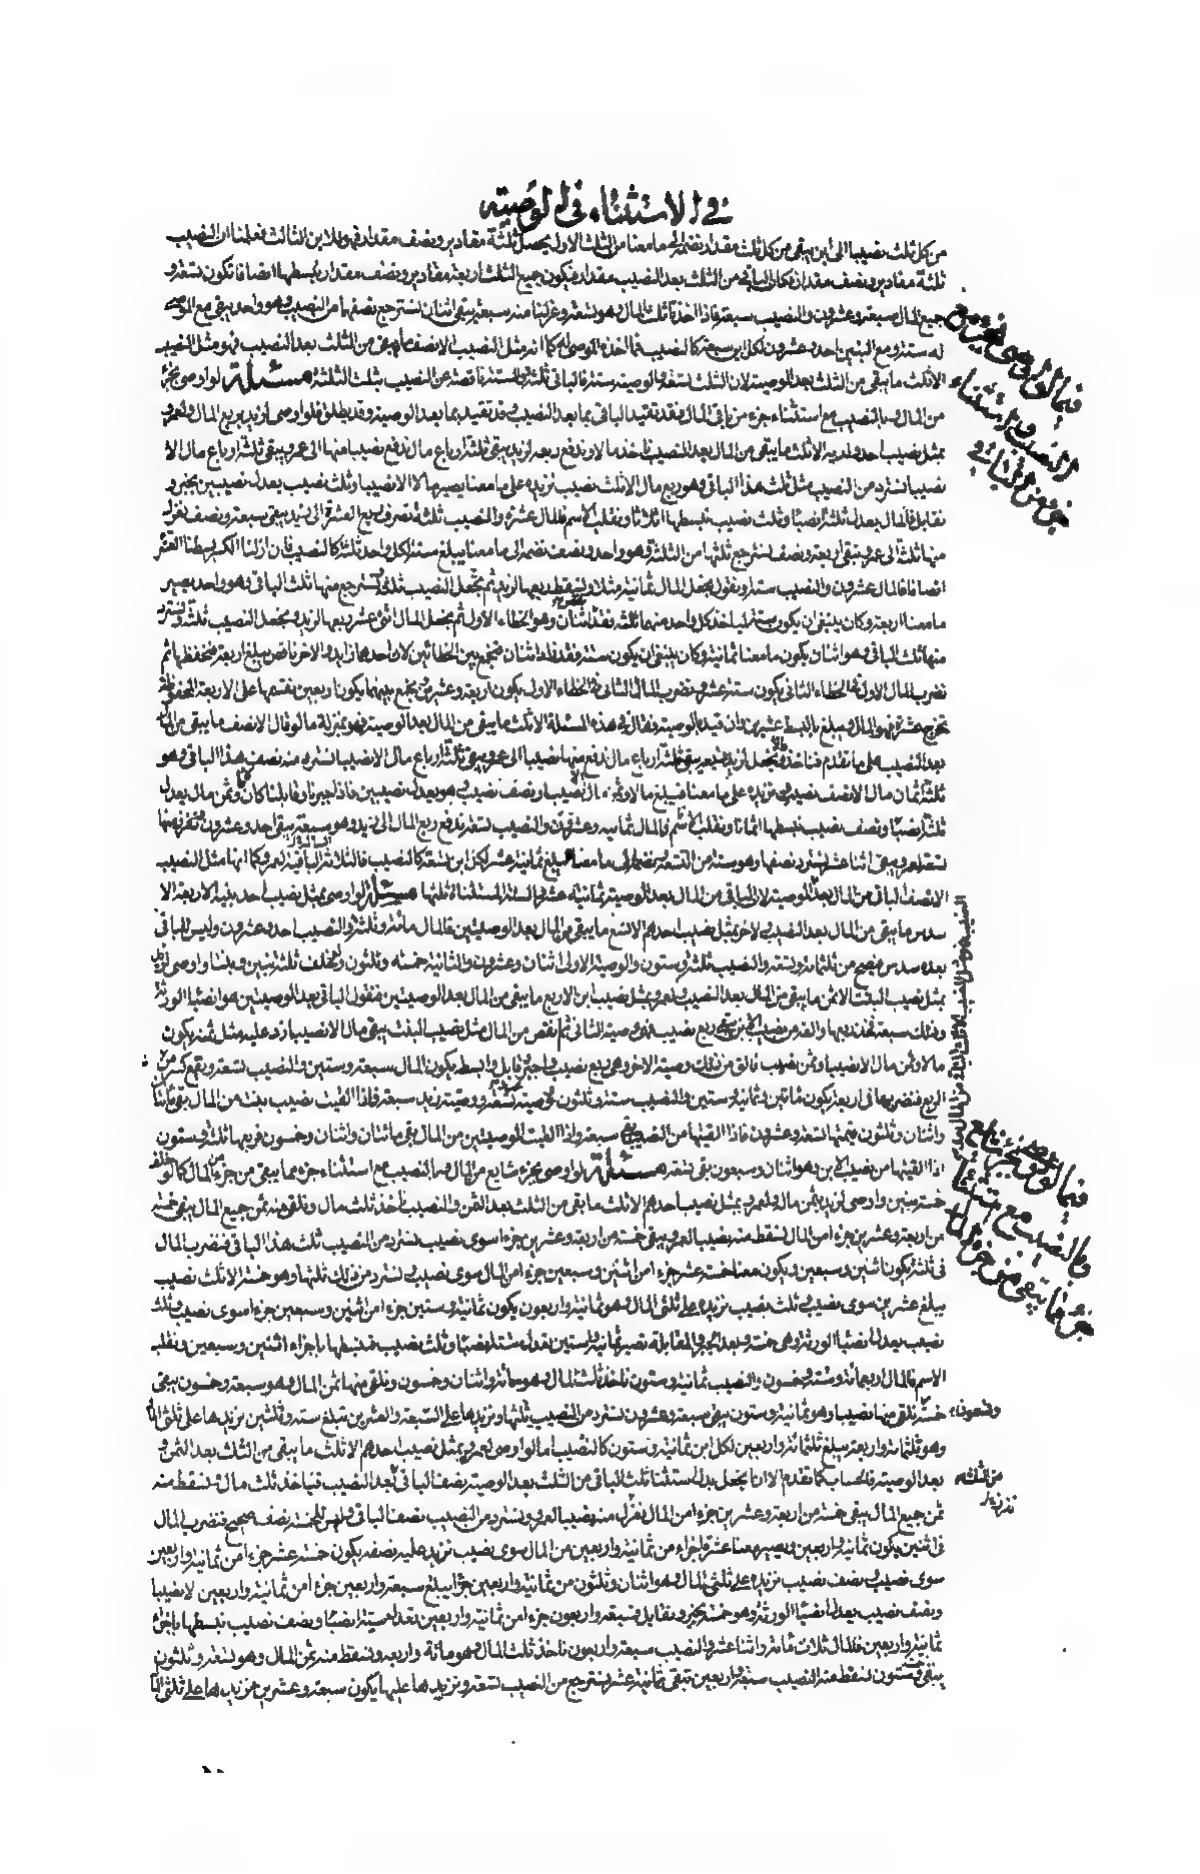 في الاستثناء في الوصيته
من كل ثلث نصيبا الى ابن يبقى من كل ثلث مقدار نضم الى ما معنا من الثلث الاول يحصل ثلثة مقادير ونصف مقدار فعلمنا ان النصيب
ثلثة مقادير ونصف مقدار الباقي من الثلث بعد النصيب مقدار فيكون جميع الثلث اربعة مقادير ونصف مقدار نبسطها انصافا تكون تسعة و
جميع المال سبعة وعشرون والنصيب سبعة فاذا اخذنا ثلث المال وهو تسعة وعزلنا منه سبعة يبقى اثنان نسترجع نصفها من النصيب وهو واحد يبقى مع الموصى
له ستة ومع البنين احد وعشرون لكل ابن سبعة كالنصيب فما اخذه الموصى له كما انه مثل النصيب الا نصف ما يبقى من الثلث بعد النصيب فهو مثل النصيب
الا ثلث ما يبقى من الثلث بعد الوصية لان الثلث تسعة والوصية ستة فالباقي ثلثة والستة ناقصة عن النصيب بثلث الثلثة مسئلة لو اوصى بجزء
من المال وبالنصيب مع استثناء جزء من باقي المال فقد تقيد الباقي بما بعد النصيب وقد تقيد بما بعد الوصية وقد يطلق فلو اوصى لزيد بربع المال ولعمرو
بمثل نصيب احد ولديه الا ثلث ما يبقى من المال بعد النصيب ناخذ مالا وندفع ربعه لزيد يبقى ثلثة ارباع مال ندفع نصيبا منها الى عمرو يبقى ثلثة ارباع مال الا
نصيبا نسترد من النصيب مثل ثلث هذا الباقي وهو ربع مال الا ثلث نصيب نزيده على ما معنا يصير مالا الا نصيبا وثلث نصيب يعدل نصيبين نجبر و
نقابل فالمال يعدل ثلثة انصبا وثلث نصيب نبسطها اثلاثا ونقلب الاسم فالمال عشرة والنصيب ثلثة نصرف ربع العشرة الى زيد يبقى سبعة ونصف نعزل
منها ثلثة الى عمرو يبقى اربعة ونصف نسترجع ثلثها من الثلثة وهو واحد ونصف نضمه الى ما معنا يبلغ ستة لكل واحد ثلثة كالنصيب فان ازلنا الكسر بسطنا العشر
انصافا فالمال عشرون والنصيب ستة ونقول نجعل المال ثمانية مثلا ونسقط ربعها لزيد ثم نجعل النصيب ثلثة ونسترجع منها ثلث الباقي وهو واحد يصير
ما معنا اربعة وكان ينبغي ان يكون ستة لياخذ كل واحد منهما ثلثة فقد نقص اثنان وهو الخطاء الاول ثم نجعل المال اثنى عشر ربعها لزيد ونجعل النصيب ثلثة ونسترد
منها ثلث الباقي وهو اثنان يكون ما معنا ثمانية وكان ينبغي ان يكون ستة فقد زاد اثنان فنجمع بين الخطائين لان احدهما زايد والاخر ناقص يبلغ اربعة فنحفظها ثم
نضرب المال الاول في الخطاء الثاني يكون ستة عشر ونضرب المال الثاني في الخطاء الاول يكون اربعة وعشرين نجمع بينهما يكون اربعين نقسمها على الاربعة المحفوظة
تخرج عشرة فهو المال ويبلغ بالبسط عشرين وان قيد بالوصية وقال في هذه المسئلة الا ثلث ما يبقى من المال بعد الوصية فهو بمنزلة ما لو قال الا نصف ما يبقى من المال
بعد النصيب على ما تقدم فناخذ مالا ونجعل لزيد ربعه يبقى ثلثة ارباع مال ندفع منها نصيبا الى عمرو يبقى ثلثة ارباع مال الا نصيبا نسترد منه نصف هذا الباقي وهو
ثلثة اثمان مال الا نصف نصيب نزيده على ما معنا فيبلغ مالا وثمن مال الا نصيبا ونصف نصيب وهو يعدل نصيبين فاذا جبرنا وقابلنا كان مالا وثمن مال يعدل
ثلثة انصبا ونصف نصيب نبسطها اثمانا ونقلب الاسم فالمال ثمانية وعشرون والنصيب تسعة ندفع ربع المال الى زيد وهو سبعة يبقى احد وعشرون نفرز منها
تسعة لعمرو يبقى اثنا عشر نسترد نصفها وهو ستة من التسعة ونضمه الى ما معنا يبلغ ثمانية عشر لكل ابن تسعة كالنصيب فالثلاثة الباقية لعمرو كما انها مثل النصيب
الا نصف الباقي من المال بعد الوصية لان الباقي من المال بعد الوصية ثمانية عشر والستة المستثناة ثلثها مسئلة لو اوصى بمثل نصيب احد بنيه الاربعة الا
سدس ما يبقى من المال بعد النصيب ولاخر بمثل نصيب احدهم الا تسع ما يبقى من المال بعد الوصيتين فالمال مائة وثلثة والنصيب احد وعشرون وليس للباقي
بعده سدس فتصح من ثلثمائة وتسعة والنصيب ثلثة وستون والوصية الاولى اثنان وعشرون والثانية خمسة وثلثون ولو خلف ثلثة بنين وبنتا واوصى لزيد
بمثل نصيب البنت الا ثمن ما يبقى من المال بعد النصيب ولعمرو بمثل نصيب ابن الا ربع ما يبقى من المال بعد الوصيتين فنقول الباقي بعد الوصيتين هو انصبا الورثة
وذلك سبعة فخذ ربعها والقه من نصيب الابن يبقى ربع نصيب فهو وصية الثاني ثم نقص من المال مثل نصيب البنت يبقى مال الا نصيبا زد عليه مثل ثمنه يكون
مالا وثمن مال الا نصيبا وثمن نصيب فالق من ذلك وصية الاخر وهي ربع نصيب واجبر وقابل وابسط يكون المال سبعة وستين والنصيب تسعة ويقع كسر من
الربع فنضربها في اربعة يكون مائتين وثمانية وستين والنصيب ستة وثلثون فوصية عمرو تسعة ووصية زيد سبعة فاذا القيت نصيب بنت من المال بقي مائتان
واثنان وثلثون فثمنها تسعة وعشرون فاذا القيتها من النصيب بقي سبعة واذا القيت الوصيتين من المال بقي مائتان واثنان وخمسون فربعها ثلثة وستون
اذا القيتها من نصيب الابن وهو اثنان وسبعون بقي تسعة مسئلة لو اوصى بجزء شايع من المال وبالنصيب مع استثناء جزء مما يبقى من جزء من المال كما لو خلف
خمسة بنين واوصى لزيد بثمن ماله ولعمرو بمثل نصيب احدهم الا ثلث ما بقي من الثلث بعد الثمن والنصيب ناخذ ثلث مال ونلقي منه ثمن جميع المال يبقى خمسة
من اربعة وعشرين جزءا من المال نسقط منه نصيبا لعمرو يبقى خمسة من اربعة وعشرين جزءا سوى نصيب نسترد من النصيب ثلث هذا الباقي فنضرب المال
في ثلثة يكون اثنين وسبعين ويكون معنا خمسة عشر جزءا من اثنين وسبعين جزءا من المال سوى نصيب ونسترد من ذلك ثلثها وهو خمسة الا ثلث نصيب
يبلغ عشرين سوى نصيب وثلث نصيب نزيده على ثلثي المال وهو ثمانية واربعون يكون ثمانية وستين جزءا من اثنين وسبعين جزءا سوى نصيب وثلث
نصيب يعدل انصبا الورثة وهي خمسة وبعد الجبر والمقابلة تصير ثمانية وستين تعدل ستة انصبا وثلث نصيب فنبسطها باجزاء اثنين وسبعين ونقلب
الاسم فالمال اربعمائة وستة وخمسون والنصيب ثمانية وستون ناخذ ثلث المال وهو مائة واثنان وخمسون ونلقي منها ثمن المال وهو سبعة وخمسون يبقى
خمسة وتسعون نلقي منها نصيبا وهو ثمانية وستون يبقى سبعة وعشرون نسترد من النصيب ثلثها ونزيدها على السبعة والعشرين تبلغ ستة وثلثين نزيدها على ثلثي المال
وهو ثلثمائة واربعة يبلغ ثلثمائة واربعين لكل ابن ثمانية وستون كالنصيب اما لو اوصى لعمرو بمثل نصيب احدهم الا ثلث ما يبقى من الثلث بعد الثمن و
بعد الوصية فالحساب كما تقدم الا انا نجعل بدل استثناء ثلث الباقي من الثلث بعد الوصية نصف الباقي بعد النصيب فناخذ ثلث مال نسقط منه
ثمن جميع المال يبقى خمسة من اربعة وعشرين جزءا من المال نعزل منه نصيبا لعمرو ونسترد من النصيب نصف الباقي وليس للخمسة نصف صحيح فنضرب المال
في اثنين يكون ثمانية واربعين ويصير معنا عشرة اجزاء من ثمانية واربعين من المال سوى نصيب نزيد عليه نصفه يكون خمسة عشر جزءا من ثمانية واربعين
سوى نصيب ونصف نصيب نزيده على ثلثي المال وهو اثنان وثلثون من ثمانية واربعين جزءا يبلغ سبعة واربعين جزءا من ثمانية واربعين الا نصيبا
ونصف نصيب يعدل انصبا الورثة وهو خمسة نجبر ونقابل فسبعة واربعون جزءا من ثمانية واربعين تعدل ستة انصبا ونصف نصيب نبسطها باجزاء
ثمانية واربعين فالمال ثلاث مائة واثنا عشر والنصيب سبعة واربعون ناخذ ثلث المال وهو مائة واربعة ونسقط منه ثمن المال وهو تسعة وثلثون
يبقى خمسة وستون نسقط منه النصيب سبعة واربعين تبقى ثمانية عشر نسترجع من النصيب تسعة ونزيدها عليها يكون سبعة وعشرين نزيدها على ثلثي المال
فيما لو اوصى بجزء مع
النصيب والاستثناء
جزء من الباقي
فيما لو اوصى بجزء شايع
وبالنصيب مع استثناء
جزء مما يبقى من جزء المال
وتسعون
من الثلثه